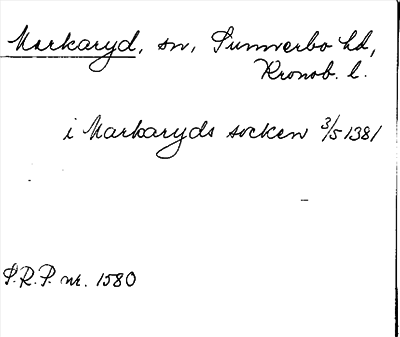 Markaryd, sn, Sunnerbo hd,
Kronob. l.
i Markaryds socken 3/5 1381
S.R.P. nr. 1580